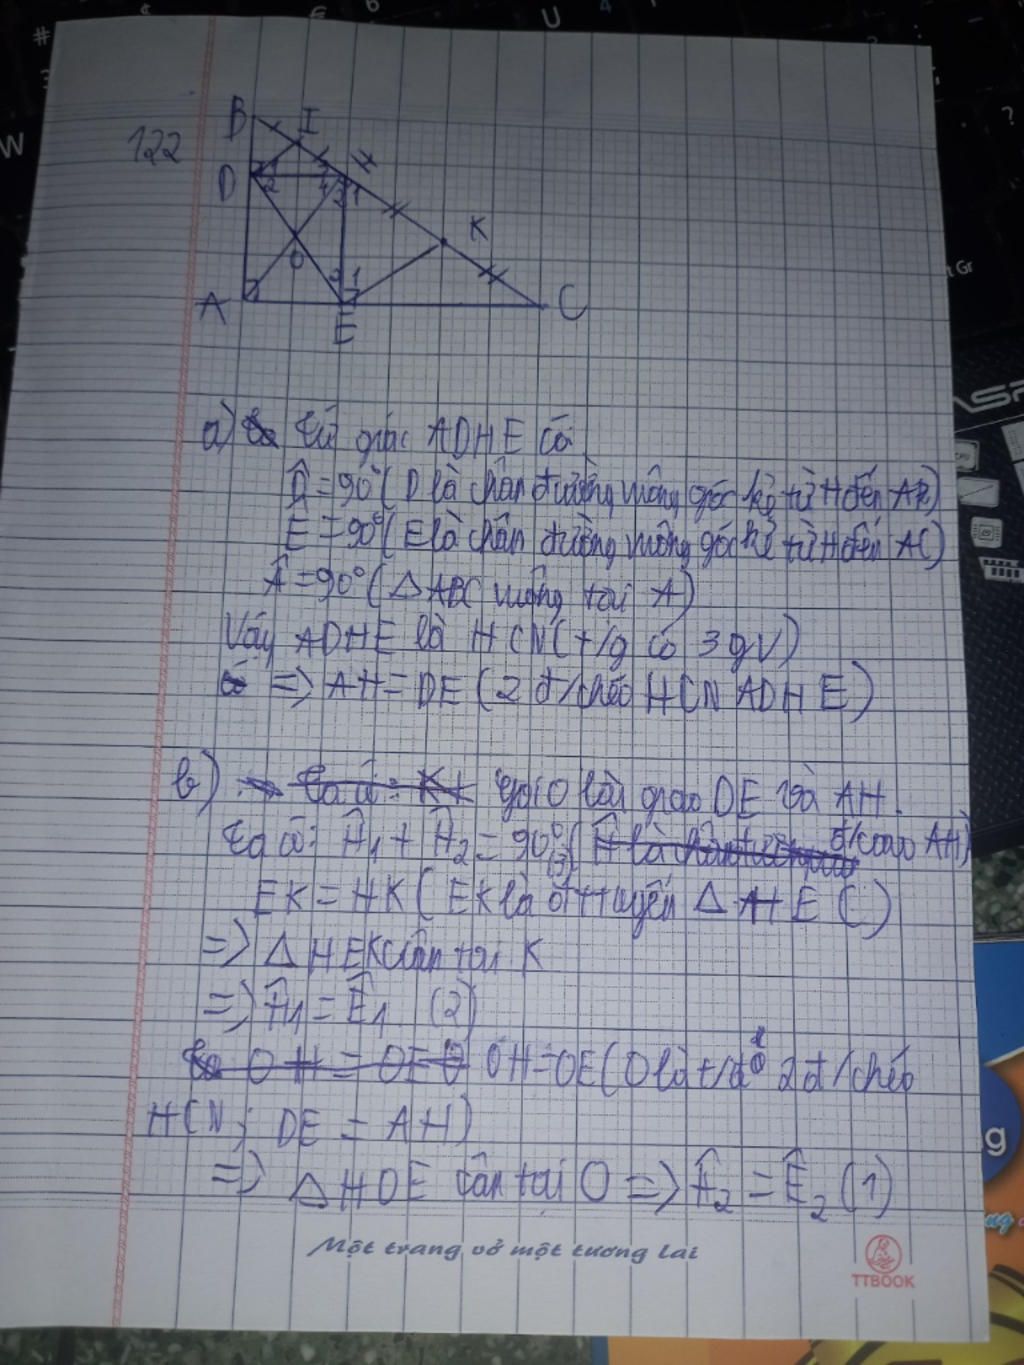 122
B
I
D
H
K
O
A
E
C
a) Tứ giác ADHE có
D̂ = 90° (D là chân đường vuông góc kẻ từ H đến AB)
Ê = 90° (E là chân đường vuông góc kẻ từ H đến AC)
Â = 90° (△ABC vuông tại A)
Vậy ADHE là HCN (t/g có 3 gv)
=> AH = DE (2 đ/chéo HCN ADHE)
b) Gọi O là giao DE và AH.
Ta có: Ĥ₁ + Ĥ₂ = 90° (3) (đ/cao AH)
EK = HK (EK là đ trung tuyến △HEC)
=> △HEK cân tại K
=> Ĥ₁ = Ê₁ (2)
OH = OE (O là t/đ 2 đ/chéo
HCN; DE = AH)
=> △HOE cân tại O => Ĥ₂ = Ê₂ (1)
Một trang vở một tương lai
TTBOOK